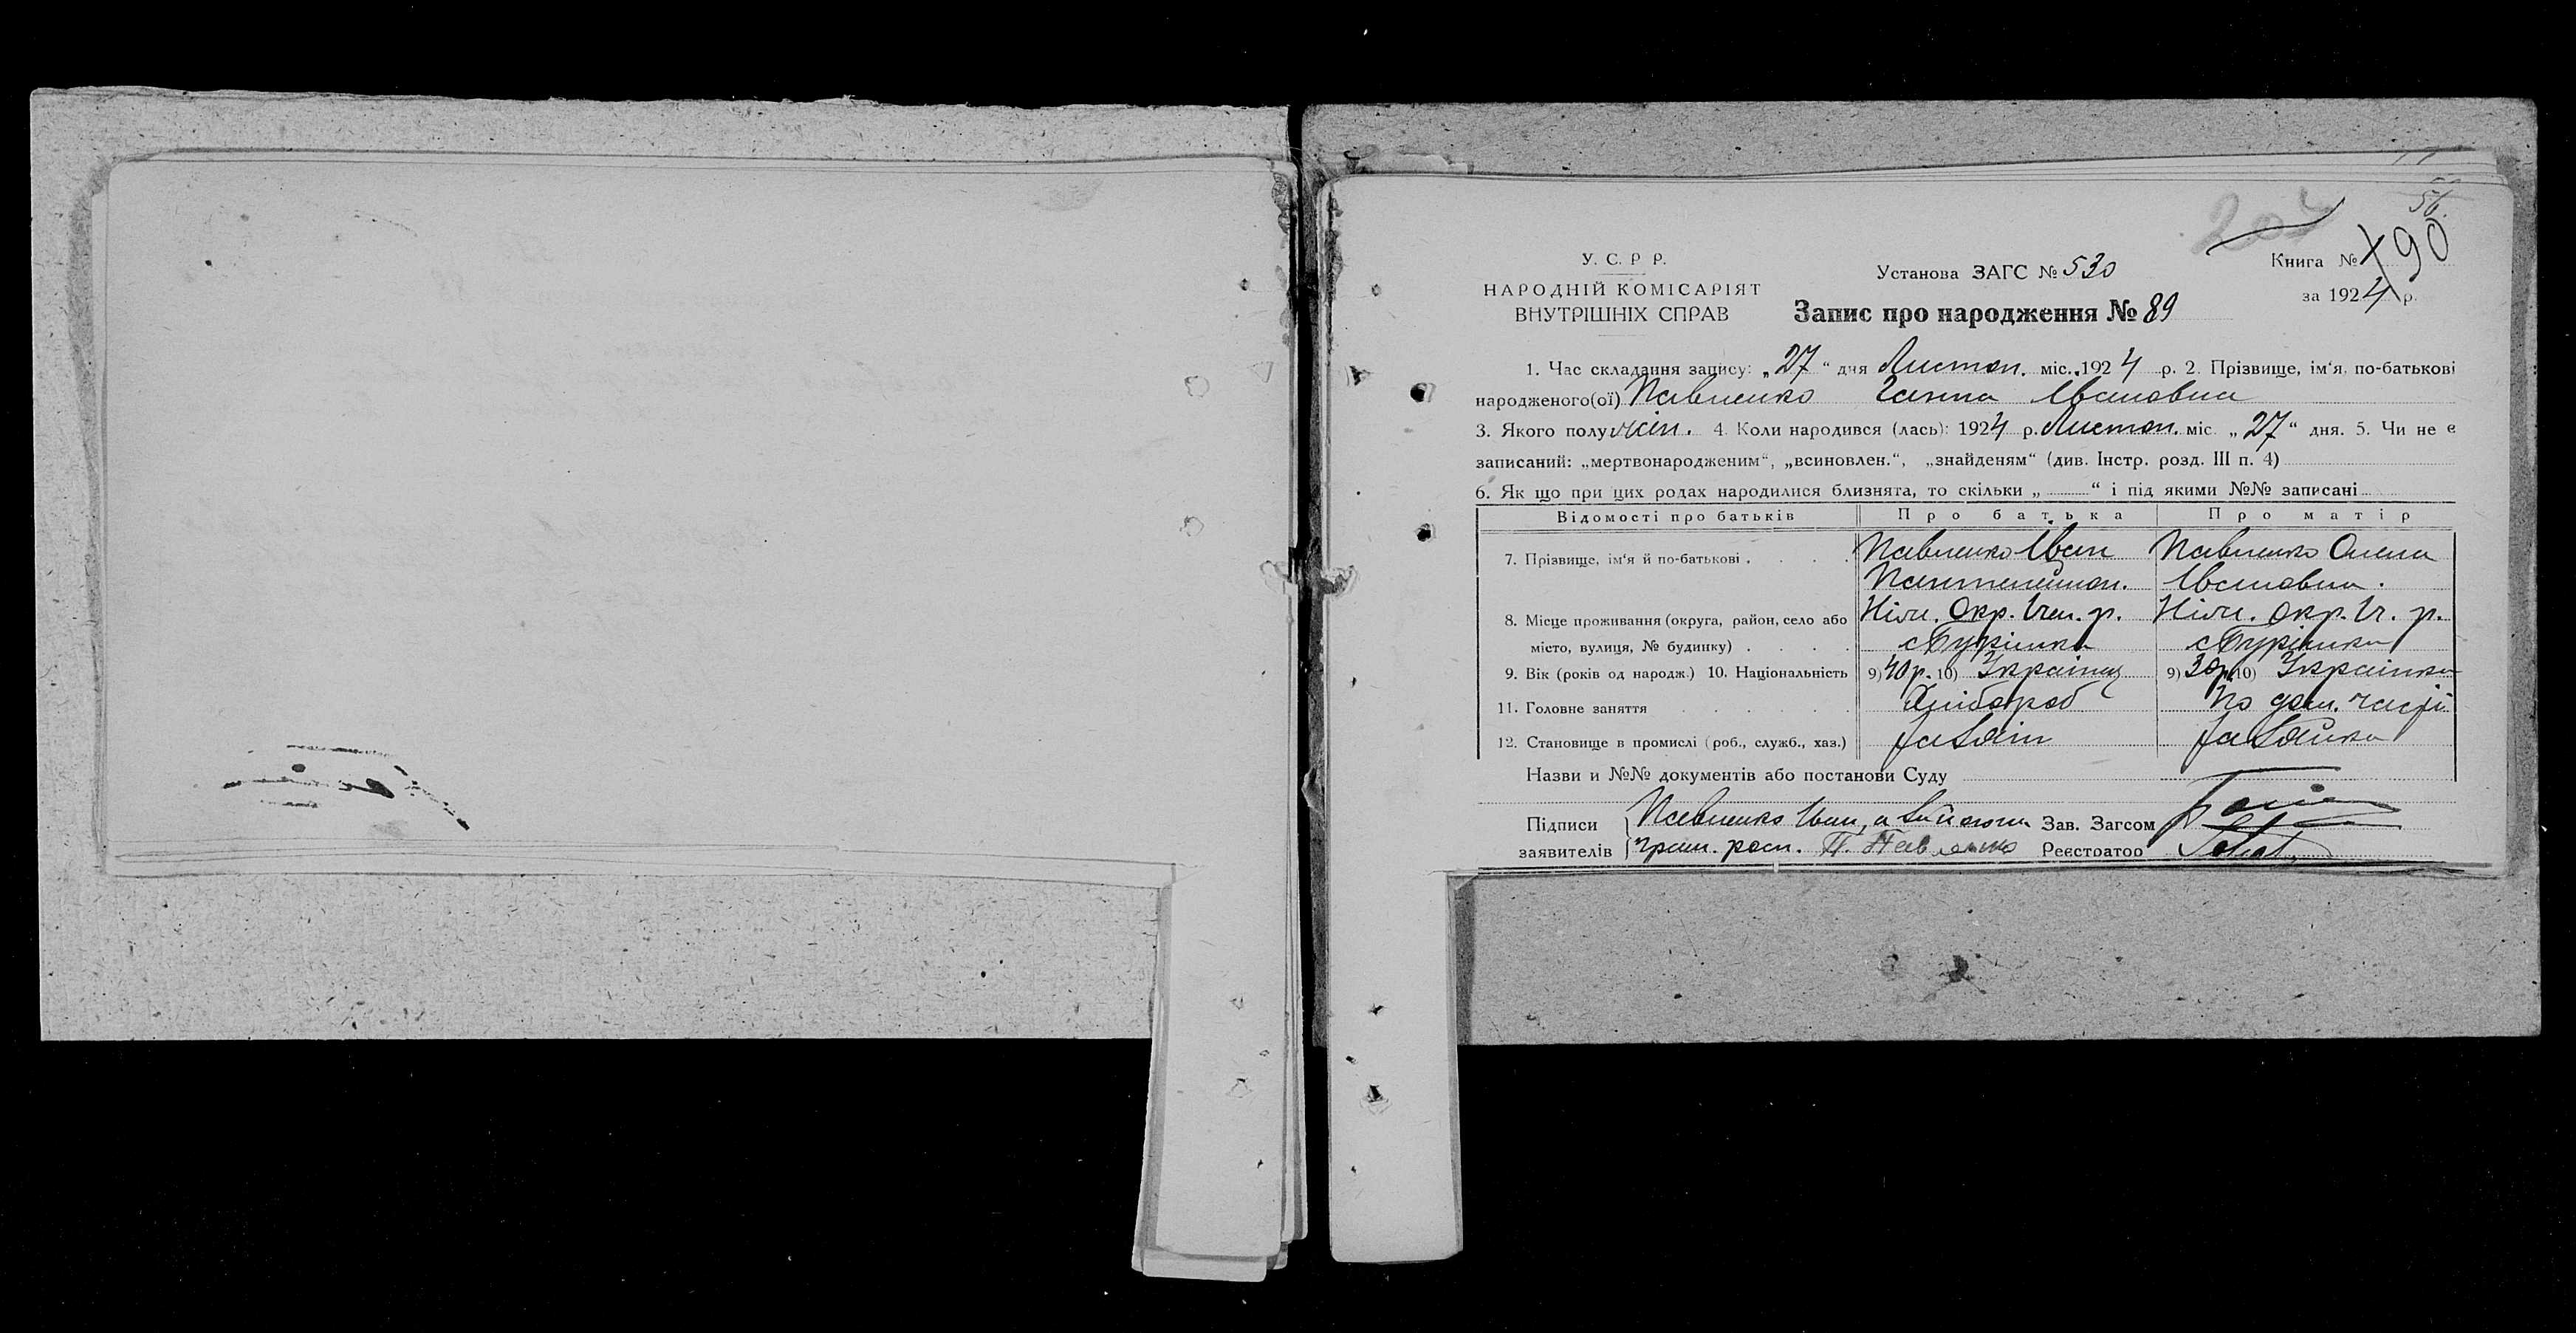 56.
204
У. С. Р Р.
НАРОДНІЙ КОМІСАРІЯТ
ВНУТРІШНІХ СПРАВ
Установа ЗАГС № 530
Запис про народження № 89
Книга № 90
за 1924 р.
1. Час складання запису: „27“ дня Листоп. міс. 1924 р. 2. Прізвище, ім‘я, по-батькові
народженого(ої) Павленко Ганна Івановна
3. Якого полу жін. 4. Коли народився (лась): 1924 р. Листоп. міс. „27“ дня. 5. Чи не є
записаний: „мертвонародженим“, „всиновлен.“, „знайденям“ (див. Інстр. розд. III п. 4)
6. Як що при цих родах народилися близнята, то скільки „ “ і під якими №№ записані
Відомості про батьків Про батька Про матір
7. Прізвище, ім‘я й по-батькові . . . . Павленко Іван Павленко Олена
Пантелеймон. Івановна.
8. Місце проживання (округа, район, село або Ніжи. Окр. Ічен. р. Ніжи. окр. Іч. р.
місто, вулиця, № будинку) . . . . с Буримка с Буримка
9. Вік (років од народж.) 10. Національність 9) 40 р. 10) Українц 9) 30 р. 10) Українка
11. Головне заняття . . . . . Хлібороб По дом. части
12. Становище в промислі (роб., служб., хаз.) хазяїн хазяйка
Назви и №№ документів або постанови Суду
Підписи Павленко Іван, а Зав. Загсом
заявителів грам. росп. П. Павленко Реєстратор